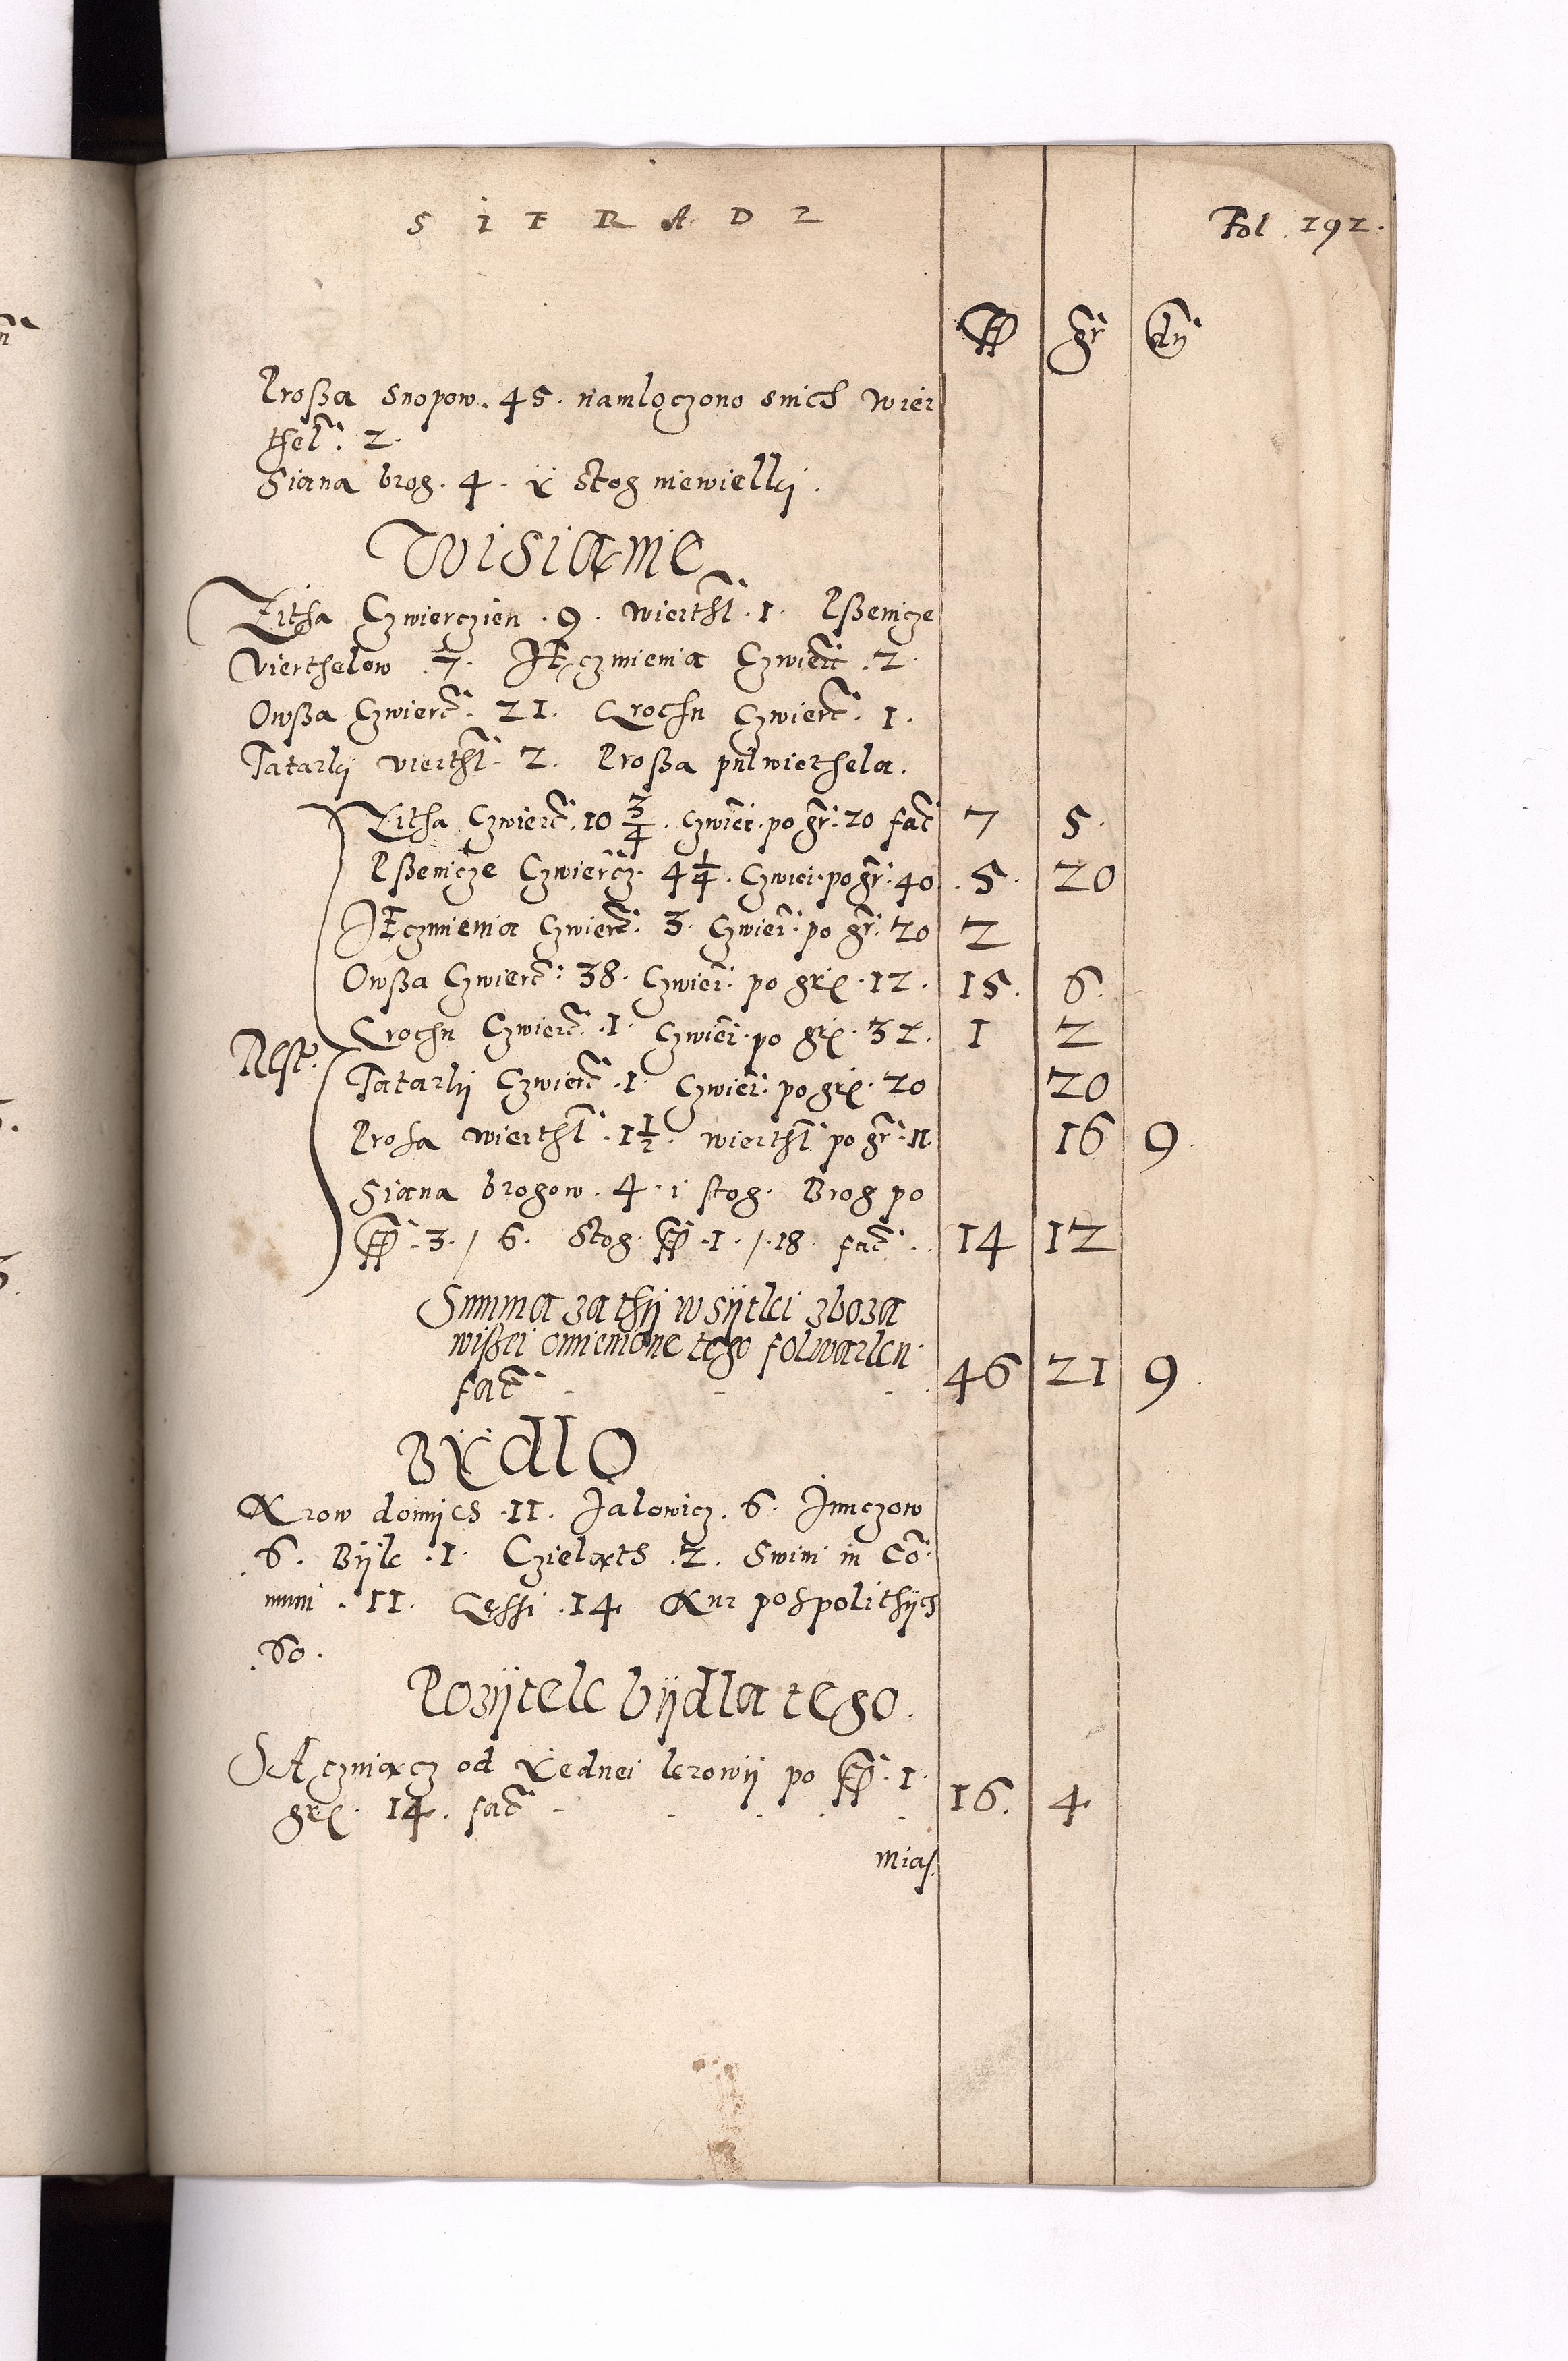 SIERADZ
Fol. 191.
fl gr dn
Prossa Snopow. 45. namloczono snich Wier
thel: 2.
Siana brog. 4. y Stog niewielki.
Wisianie
Zitha Czwierczien .9. wierthl .1. Pssenicze
vierthelow .7. IEczmienia Czwierc .2.
Owssa Czwierc. 21. Grochu Czwierc. 1.
Tatarky vierthl. 2. Prossa pulwierthela.
Zitha Czwierc. 10 3/4. Czwier. po gr. 20 fac 7 5.
Pssenicze Czwiercz. 4 1/4. Czwier. po gr. 40 .5. 20
IEczmienia Czwierc. 3. Czwier. po gr. 20 2
Owssa Czwierc: 38. Czwier. po gr. 12. 15. 6.
Rest. Grochu Czwierc. 1. Czwier. po gr. 32. 1 2
Tatarky Czwierc. 1. Czwier. po gr. 20 20
Prosa wierthl. 1 1/2. wierthl. po gr. 11. 16 9.
Siana brogow. 4. i stog. Brog po
fl. 3. / 6. Stog. fl. 1. / .18. fac. 14 12
Summa za thy wsytki zboza
wissei omienione tego folwarku
fac 46 21 9.
Bydlo
Krow doinych .11. Jalowicz. 6. Junczow
.6. Byk .1. Czieląth .2. Swini in Co
muni .11. Gęssi .14 Kur pospolithych
.60.
Pozytek bydla tego.
SAczniącz od Jednei krowy po fl. 1.
gr. 14. fac 16. 4
mias.